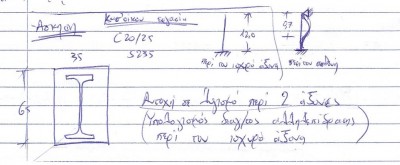 Άσκηση
C20/25
S235
12,0
5,7
περί τον ισχυρό άξονα
35
65
Αντοχή σε λυγισμό περί 2 άξονες
(Υπολογισμός διαγ/τος αλληλεπίδρασης
περί τον ισχυρό άξονα)